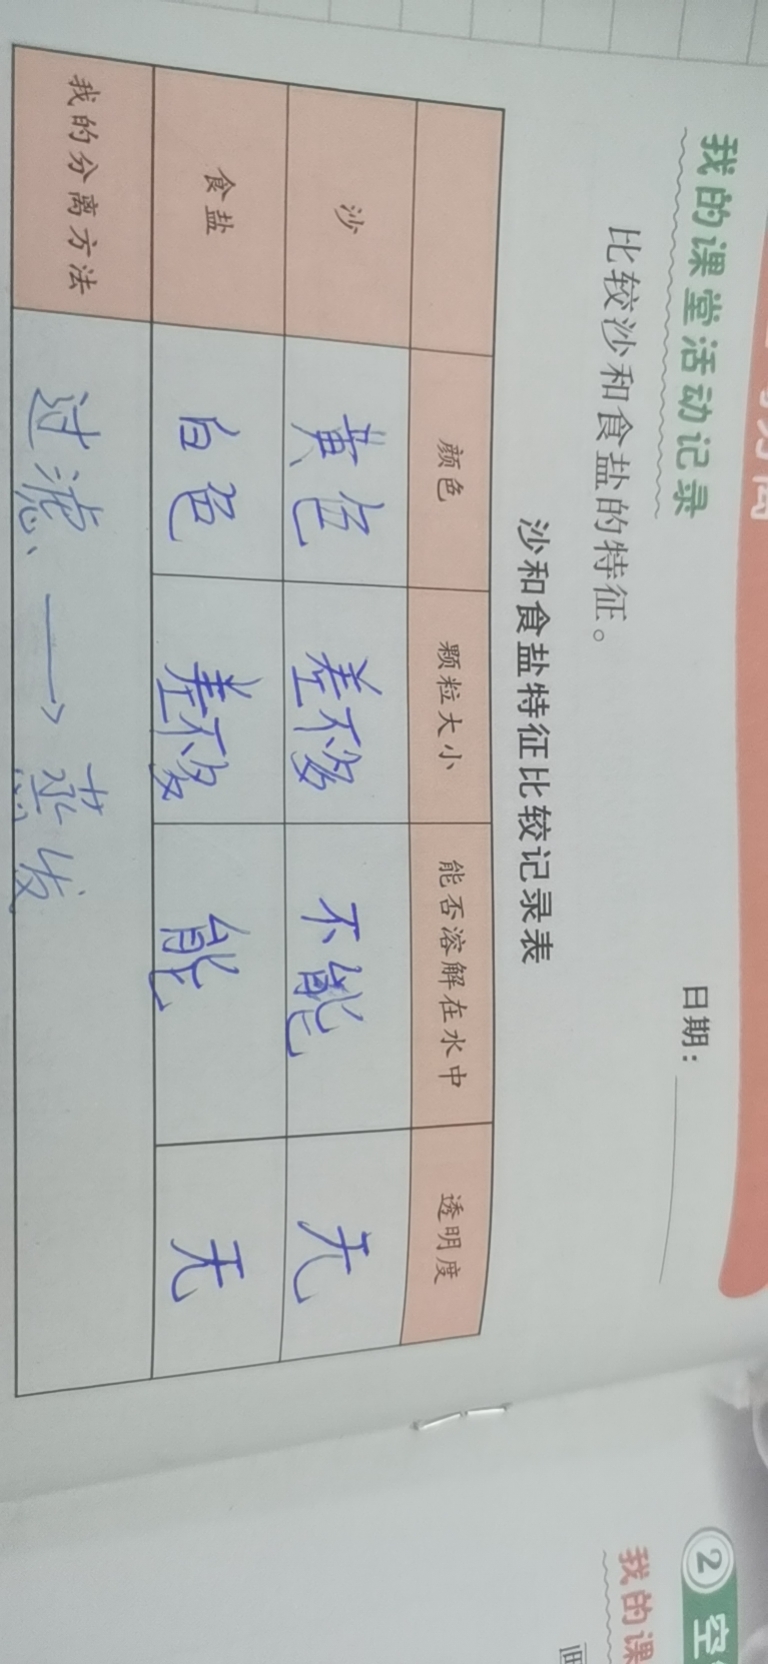 我的课堂活动记录
日期：
比较沙和食盐的特征。
沙和食盐特征比较记录表
颜色 颗粒大小 能否溶解在水中 透明度
沙 黄色 差不多 不能 无
食盐 白色 差不多 能 无
我的分离方法 过滤、→蒸发
2 空
我的课